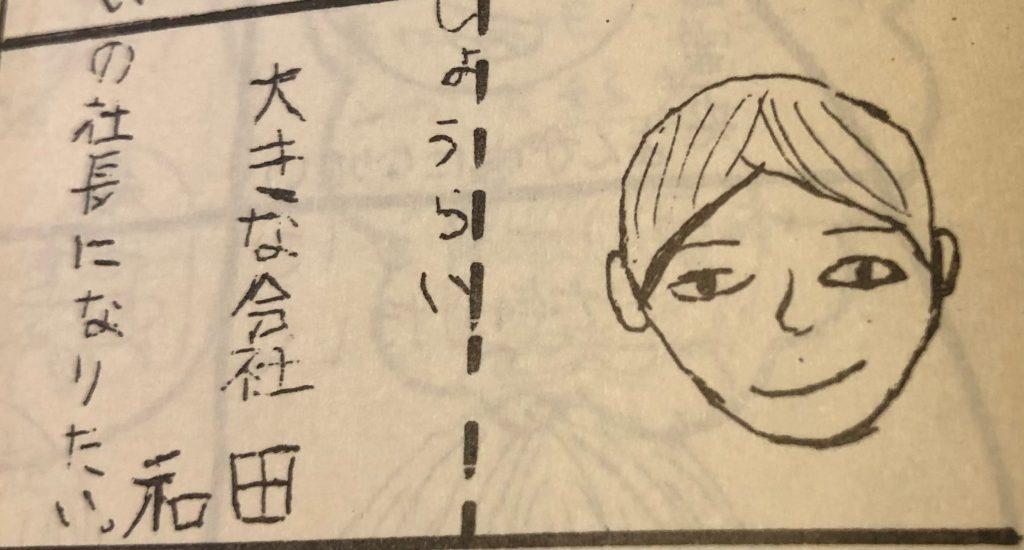 しょうらい
大きな会社
の社長になりたい。
和田